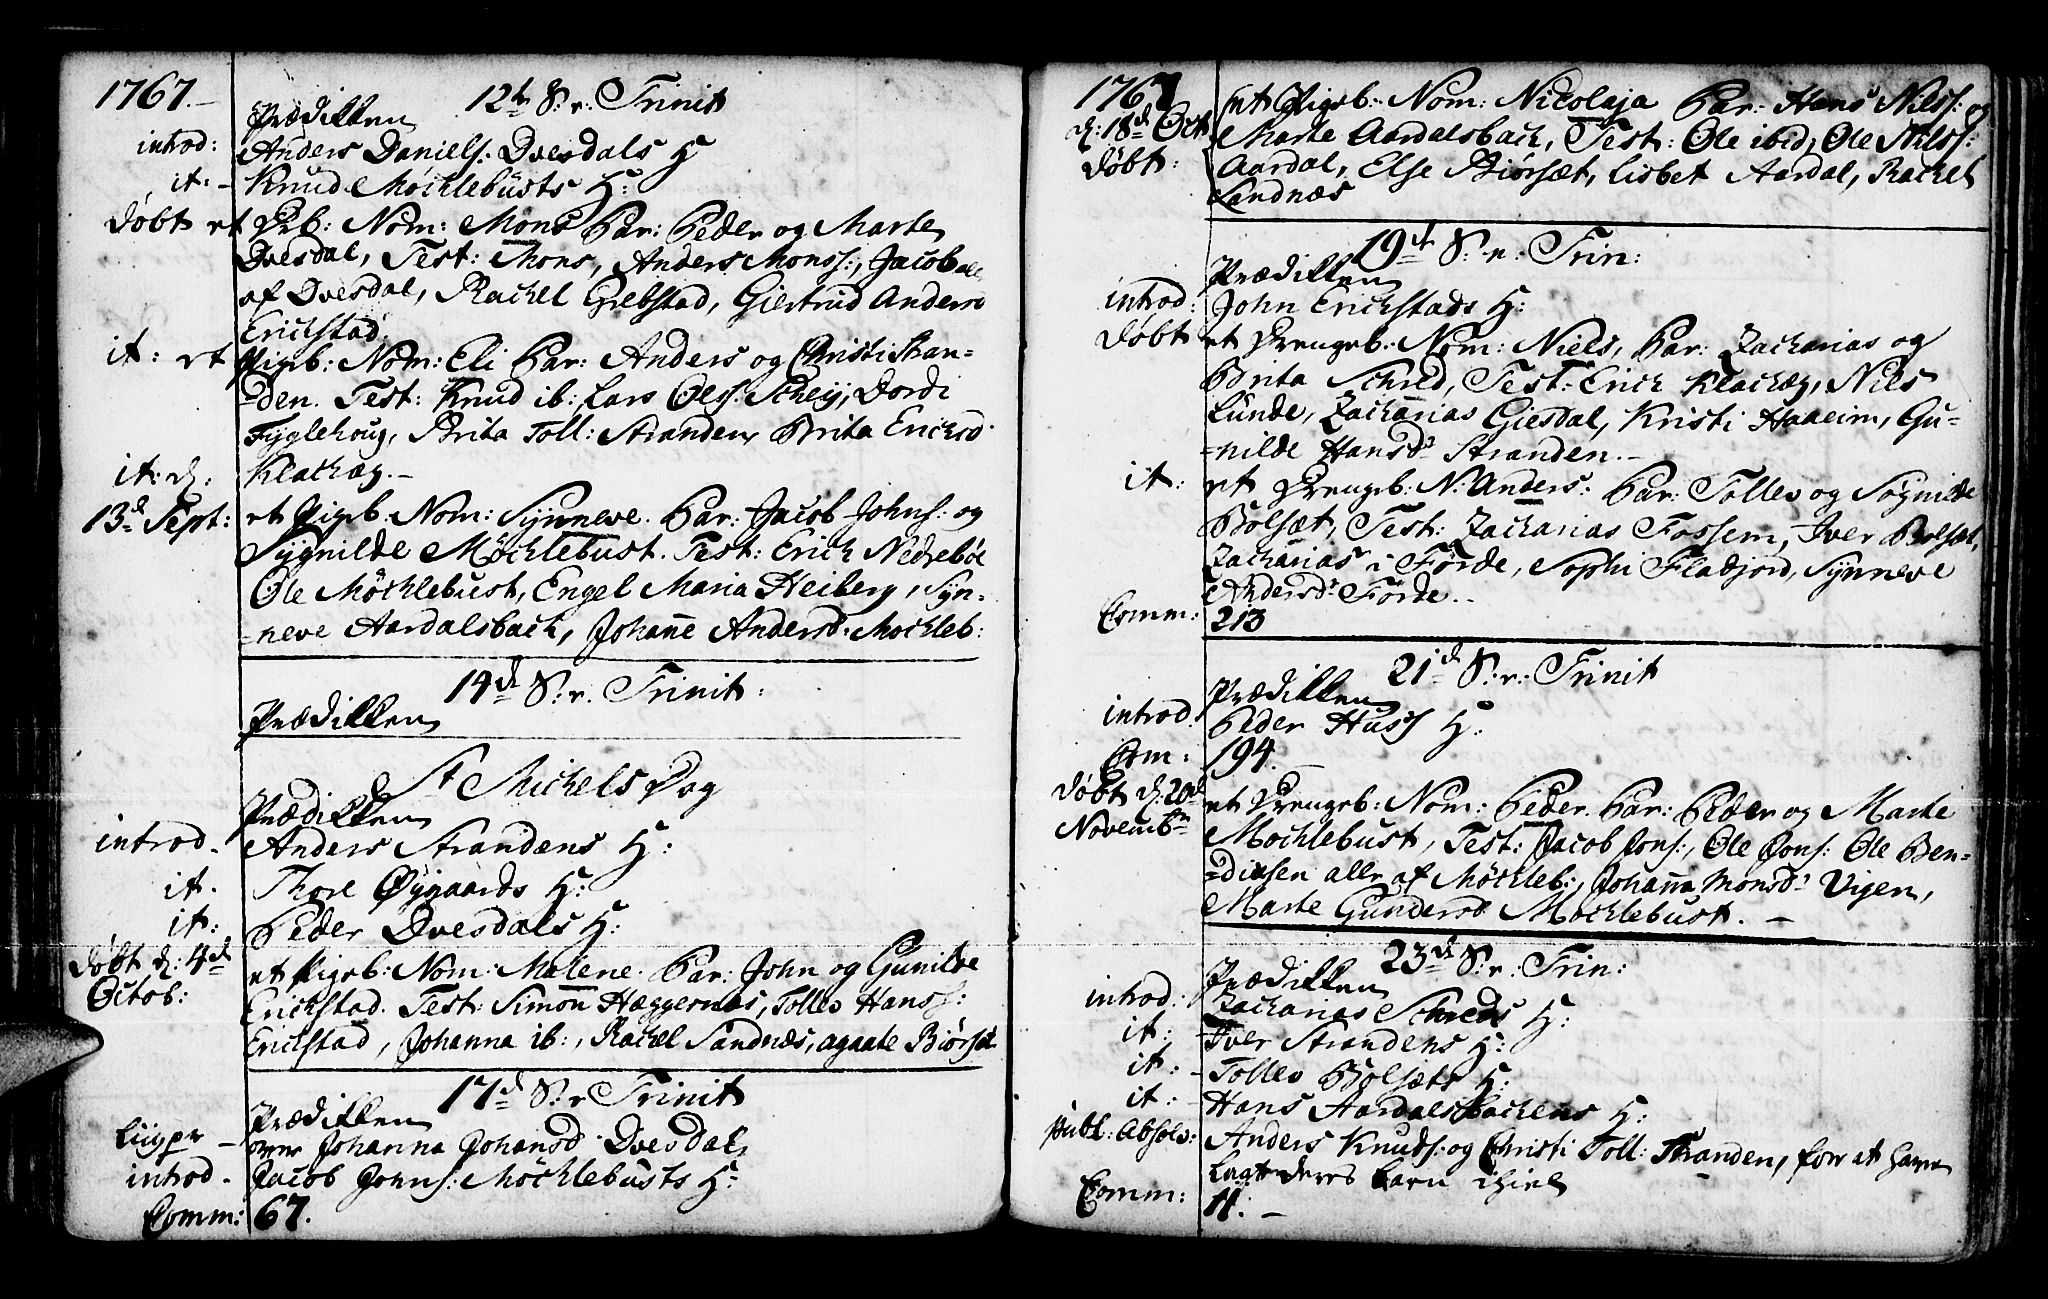 1767.-
12te S: e: Trinit
Prædikken
introd: Anders Daniels: Dvesdals H:
it: - Knud Möchlebústs H:
Døbt et Drb: Nom: Mons Par: Peder og Marte
Dvesdal, Test: Mons, Anders Monss:, Jacob alle
af Dvesdal, Rachel Grebstad, Giertrud Andersd
Erichstad
it: et Pigeb: Nom: Eli Par: Anders og Christi Stran=
=den. Test: Knud ib: Lars Ols: Schey, Dordi
Fyglehoug, Brita Toll: Stranden, Brita Ericksd:
Klackæg.-
it: d: 13d Sept: et Pigeb: Nom: Synneve. Par: Jacob Johns: og
Sygnilde Möchlebust. Test: Erich Nedrebøe
Ole Möchlebust, Engel Maria Heiberg, Syn=
=neve Aardalsbach, Johanne Andersd: Mochleb:
14de S: e. Trinit:
Prædikken
St Michels Dag
Prædikken
introd. Anders Strandens H:
it. Thore Øygaards H:
it: Peder Dvesdals H:
Døbt d: 4de Octob: et Pigeb: Nom: Malene. Par: John og Gunilde
Erichstad. Test: Simon Hæggernæs, Tollev Hanss:
Erichstad, Johanna ib:, Rachel Sandnæs, agaate Biørset
17de S: e Trinit
Prædikken
over Johanna Johansd Dvesdal
introd. Jacob Johns: Möchlebústs H:
Comm: 67.
1767
d: 18de Oct Døbt: et Pigeb: Nom: Nicolaja Par: Hans Nilss: og
Marte Aardalsbach, Test: Ole ibid, Ole Nilss:
Aardal, Else Biørsæt, Lisbet Aardal, Rachel
Sandnæs
19de S: e: Trin:
Prædikken
introd: John Erichstads H:
Døbt et Drengeb: Nom: Niels, Par: Zacharias og
Brita Schred, Test: Erich Klachæg, Nils
Lunde, Zacharias Giesdal, Kristi Haaheim, Gu=
=nilde Hansd: Stranden.-
it: et Drengeb: N: Anders: Par: Tollev og Sygnilde
Bolsæt, Test: Zacharias Fossem, Iver Bolsæt,
Zacharias i Førde, Sophi Fladjord, Synneve
Andersd: Førde.-
Comm: 213
21de S: e: Trinit
Prædikken
introd. Peder Huss H:
Com: 194.
Døbt d: 20de Novembr et Drengeb: Nom: Peder. Par: Peder og Marte
Mochlebust, Test: Jacob Jons:, Ole Jons: Ole Ben=
=dixsen alle af Möchleb:, Johanna Monsd: Vigen,
Marte Gundersd Mochlebust. -
23de S: e. Trin:
Prædikken
introd: Zacharias Schreds H:
it: Iver Strandens H:
it: - Tollev Bolsæts H:
it: Hans Aardalsbachens H:
Publ: Absolv: Anders Knuds: og Christi Toll: Stranden, for at have
lagt deres barn ihiel
Comm: 11. -